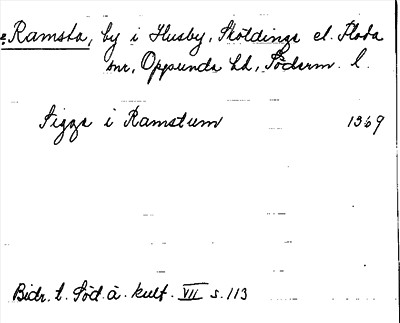 Ramsta, by i Husby, Sköldinge el. Floda
snr, Oppunda hd, Söderm. l.
Sigge i Ramstum 1369
Bidr. t. Söd. ä. kult. VII s. 113